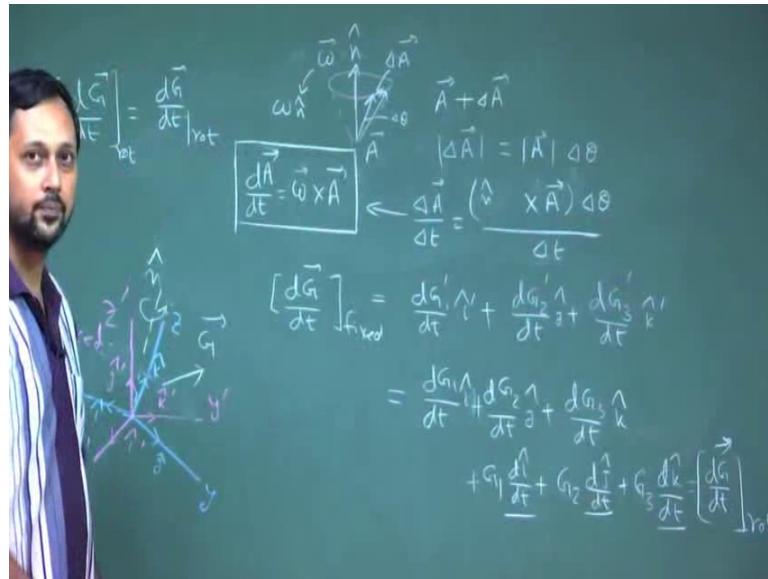 dG⃗/dt]rot = dG⃗/dt|rot
ω⃗ n̂ ΔA⃗
ωn̂ Δθ A⃗ + ΔA⃗
A⃗
|ΔA⃗| = |A⃗| Δθ
dA⃗/dt = ω⃗ × A⃗ ← ΔA⃗/Δt = (n̂ × A⃗) Δθ/Δt
[dG⃗/dt]fixed = dG₁'/dt î' + dG₂'/dt ĵ + dG₃'/dt k̂'
= dG₁/dt î + dG₂/dt ĵ + dG₃/dt k̂
+ G₁ dî/dt + G₂ dĵ/dt + G₃ dk̂/dt = [dG⃗/dt]rot
n̂
z' z G⃗
k̂'
y'
y